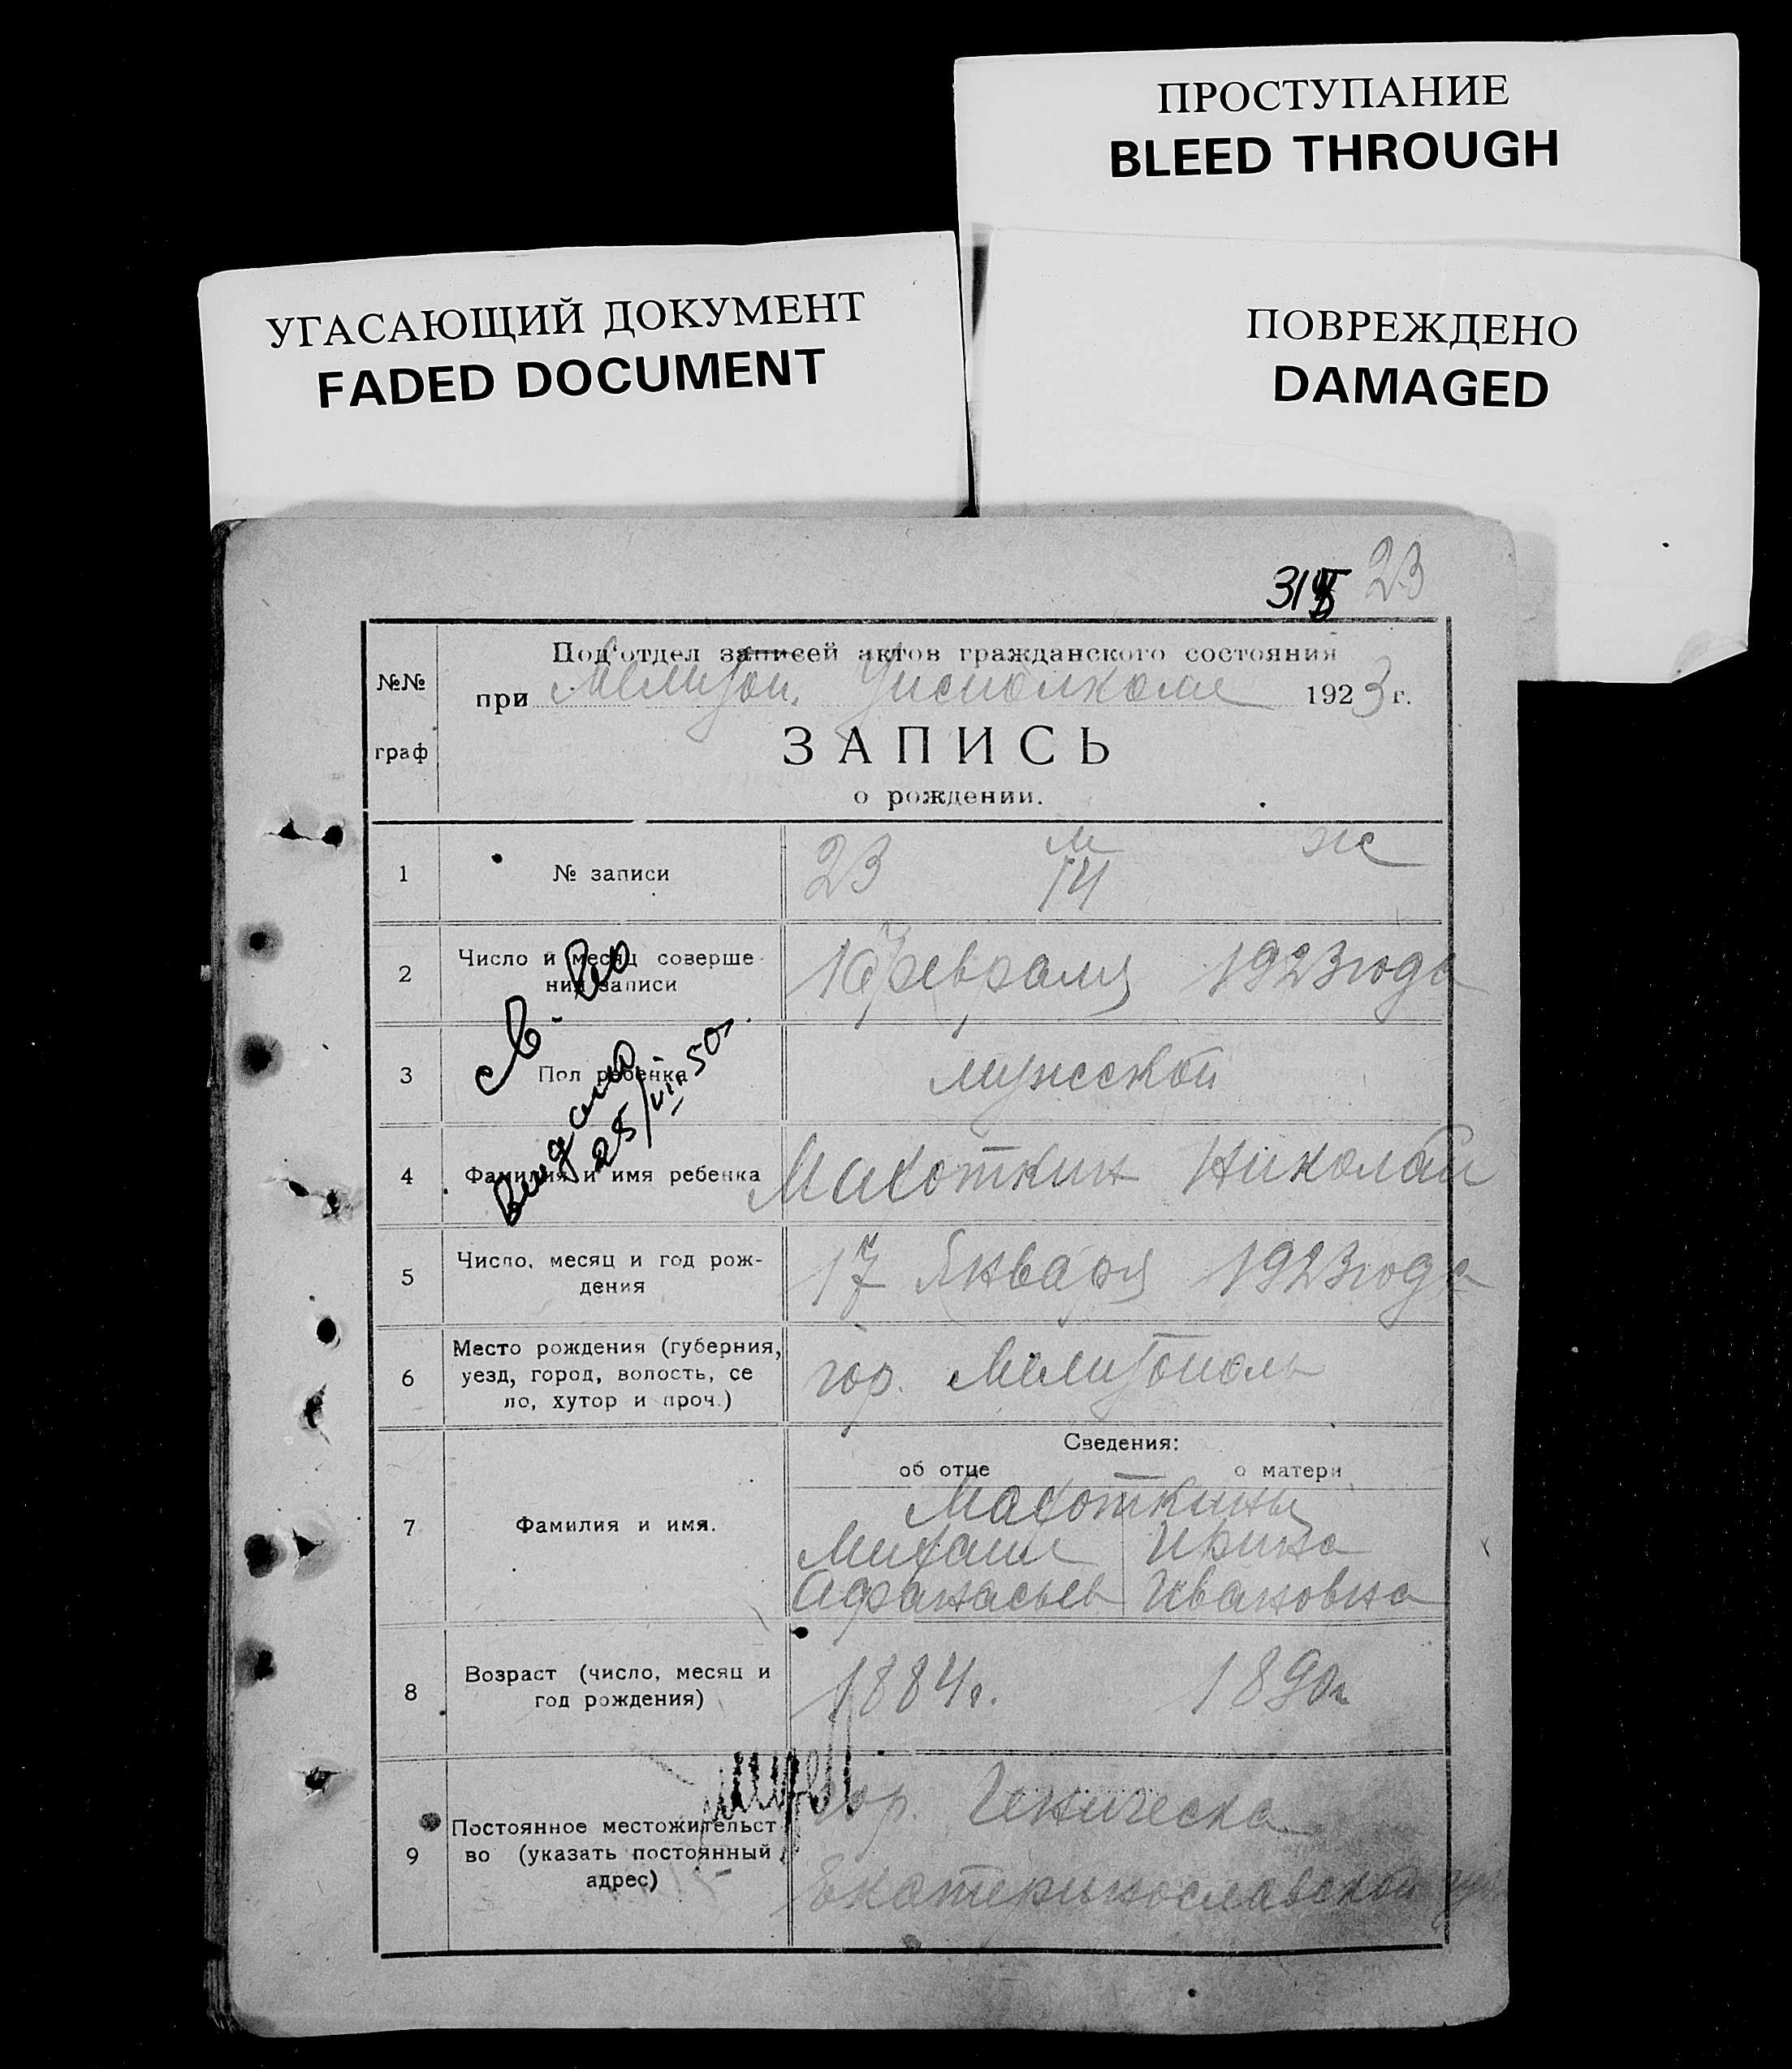 ПРОСТУПАНИЕ
BLEED THROUGH
УГАСАЮЩИЙ ДОКУМЕНТ
FADED DOCUMENT
ПОВРЕЖДЕНО
DAMAGED
23
№№ граф
Под'отдел записей актов гражданского состояния
при Мелитоп. Уисполкоме 1923 г.
ЗАПИСЬ
о рождении.
м ж
1 № записи 23 14
2 Число и месяц соверше
ния записи февраля 1923 года
3 Пол ребенка мужской
4 Фамилия и имя ребенка Махоткин Николай
5 Число, месяц и год рож-
дения 17 Января 1923 года
6 Место рождения (губерния,
уезд, город, волость, се
ло, хутор и проч.) гор. Мелитополь
Сведения:
об отце о матери
Махоткины
7 Фамилия и имя. Михаил Ирина
Афанасьев Ивановна
8 Возраст (число, месяц и
год рождения) 1884г. 1890г
9 Постоянное местожительст
во (указать постоянный
адрес) гор. Геническа
Екатеринославской гу
С. во
Выдано
25/VII 50г.